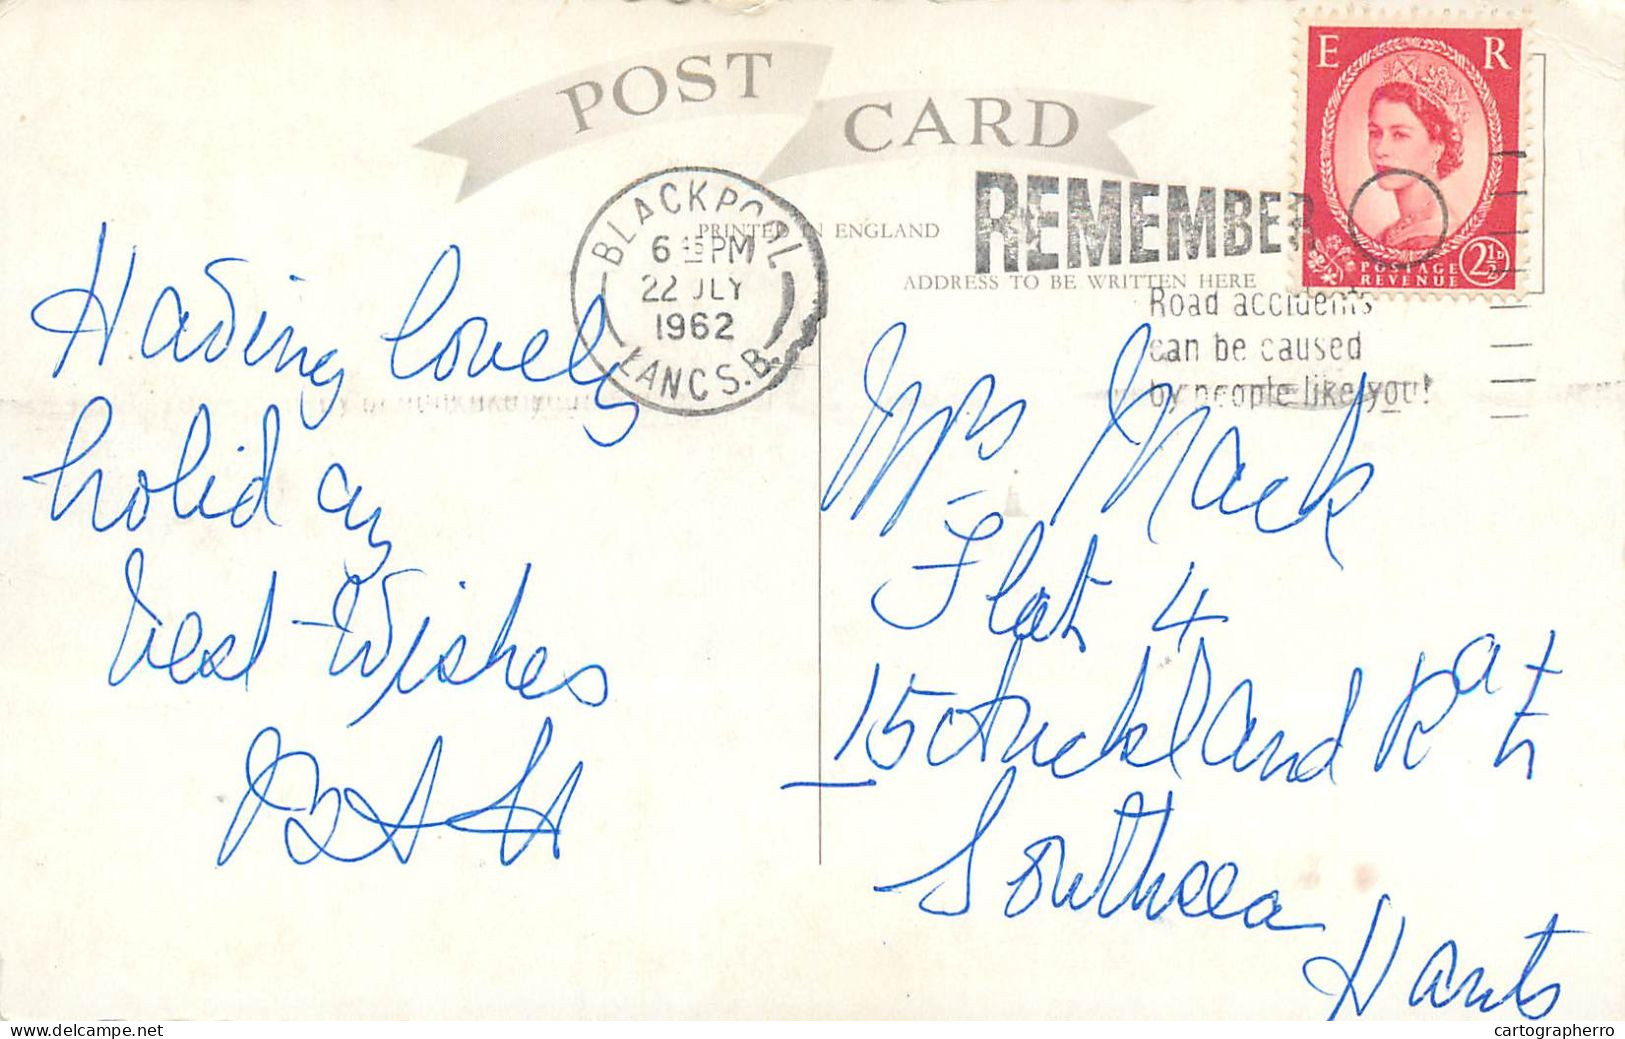 POST CARD
PRINTED IN ENGLAND
ADDRESS TO BE WRITTEN HERE
BLACKPOOL
6 45 PM
22 JLY
1962
LANCS. B.
REMEMBER
Road accidents
can be caused
by people like you!
E R
POSTAGE
REVENUE
2½D
Having lovely
holiday
best Wishes
Mrs Mack
Flat 4
15 Auckland Rd
Southsea
Hants
cartographerro